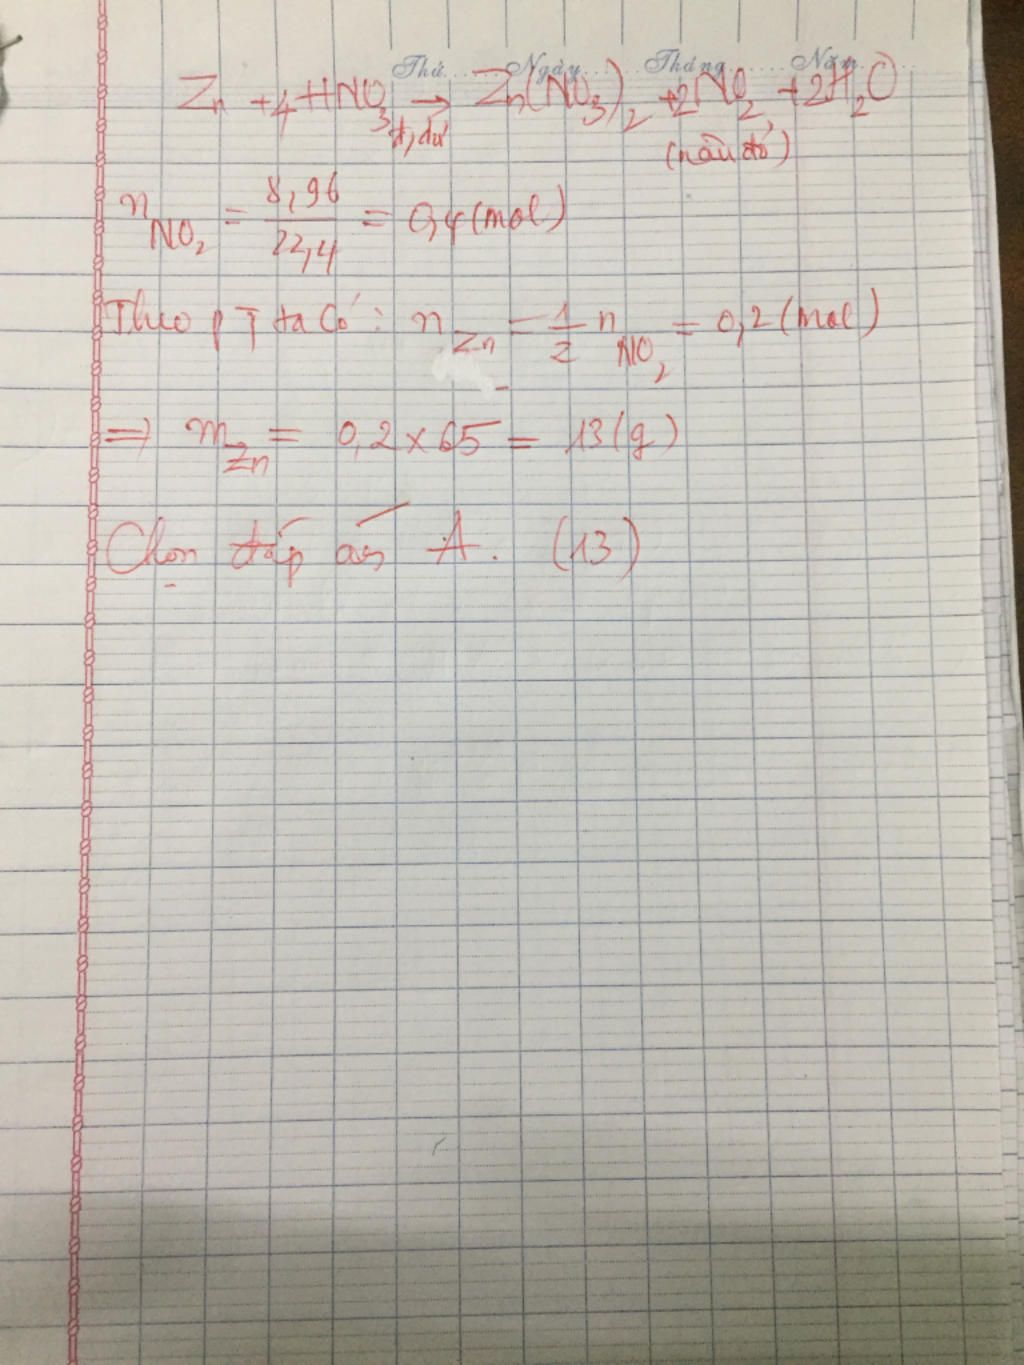 Thứ.......Ngày.......Tháng.......Năm.......
Zn + 4HNO3 → Zn(NO3)2 + 2NO2 + 2H2O
đ, dư (nâu đỏ)
nNO2 = 8,96/22,4 = 0,4 (mol)
Theo PT ta có: nZn = 1/2 nNO2 = 0,2 (mol)
=> mZn = 0,2 × 65 = 13 (g)
Chọn đáp án A. (13)